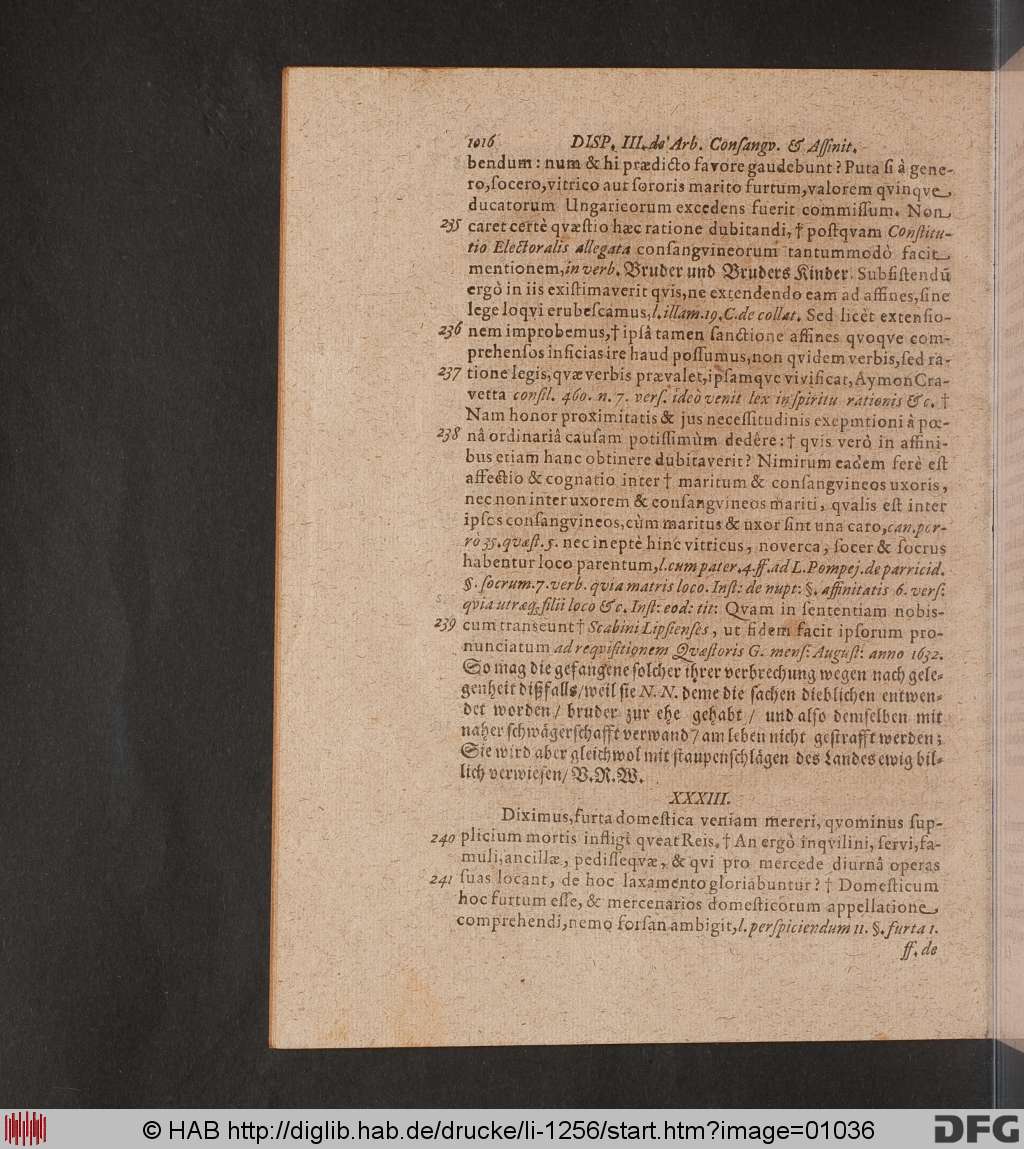 1016 DISP. III. de Arb. Consangv. & Affinit.
bendum: num & hi prædicto favore gaudebunt? Puta si à gene-
ro, socero, vitrico aut sororis marito furtum, valorem qvinqve
ducatorum Ungaricorum excedens fuerit commissum. Non
235 caret certè qvæstio hæc ratione dubitandi, † postqvam Constitu-
tio Electoralis allegata consangvineorum tantummodò facit
mentionem, in verb. Bruder und Bruders Kinder. Subsistendũ
ergò in iis existimaverit qvis, ne extendendo eam ad affines, sine
lege loqvi erubescamus, l. illam. 19. C. de collat. Sed licèt extensio-
236 nem improbemus, † ipsâ tamen sanctione affines qvoqve com-
prehensos inficias ire haud possumus, non qvidem verbis, sed ra-
237 tione legis, qvæ verbis prævalet, ipsamqve vivificat, Aymon Cra-
vetta consil. 460. n. 7. vers. ideò venit lex in spiritu rationis &c. †
Nam honor proximitatis & jus necessitudinis exepmtioni â pœ-
238 nâ ordinariâ causam potissimùm dedêre: † qvis verò in affini-
bus etiam hanc obtinere dubitaverit? Nimirum eadem ferè est
affectio & cognatio inter † maritum & consangvineos uxoris,
nec non inter uxorem & consangvineos mariti, qvalis est inter
ipsos consangvineos, cùm maritus & uxor sint una caro, can. por-
rò 35. qvæst. 5. nec ineptè hinc vitricus, noverca, socer & socrus
habentur loco parentum, l. cum pater. 4. ff. ad L. Pompej. de parricid.
§. socrum. 7. verb. qvia matris loco. Inst: de nupt: §. affinitatis 6. vers:
qvia utræq; filii loco &c. Inst: eod: tit: Qvam in sententiam nobis-
239 cum transeunt † Scabini Lipsienses, ut fidem facit ipsorum pro-
nunciatum ad reqvisitionem Qvæstoris G. mens: August: anno 1632.
So mag die gefangene solcher ihrer verbrechung wegen nach gele-
genheit dißfalls / weil sie N. N. deme die sachen dieblichen entwen-
det worden / bruder zur ehe gehabt / und also demselben mit
naher schwägerschafft verwand / am leben nicht gestrafft werden;
Sie wird aber gleichwol mit staupenschlägen des Landes ewig bil-
lich verwiesen / V. R. W.
XXXIII.
Diximus, furta domestica veniam mereri, qvominus sup-
240 plicium mortis infligi qveat Reis. † An ergò inqvilini, servi, fa-
muli, ancillæ, pedisseqvæ, & qvi pro mercede diurnâ operas
241 suas locant, de hoc laxamento gloriabuntur? † Domesticum
hoc furtum esse, & mercenarios domesticorum appellatione
comprehendi, nemo forsan ambigit, l. perspiciendum 11. §. furta 1.
ff. de
© HAB http://diglib.hab.de/drucke/li-1256/start.htm?image=01036
DFG